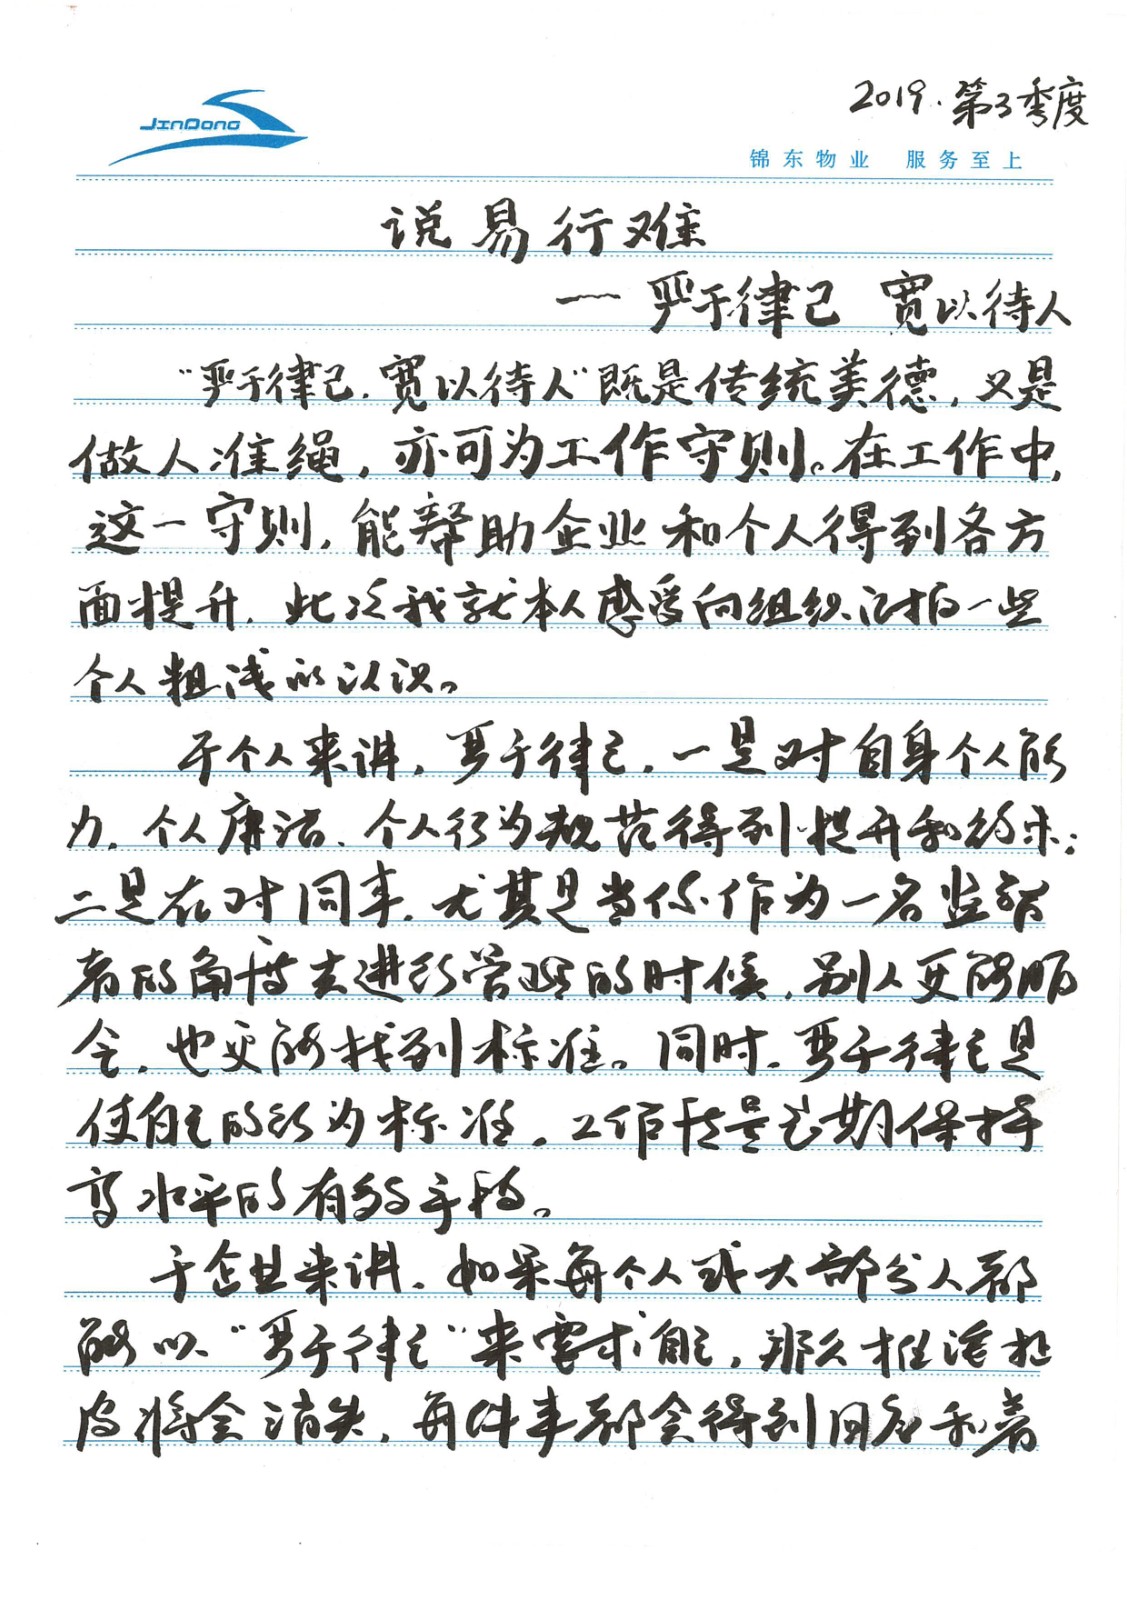 2019.第3季度
JinDong
锦东物业 服务至上
说易行难
——严于律己 宽以待人
“严于律己,宽以待人”既是传统美德,又是
做人准绳,亦可为工作守则。在工作中,
这一守则,能帮助企业和个人得到各方
面提升,此次我就本人感受向组织汇报一些
个人粗浅的认识。
于个人来讲,严于律己,一是对自身个人能
力、个人廉洁、个人行为规范得到提升和约束;
二是在对同事,尤其是当你作为一名监督
者的角度去进行管理的时候,别人更能领
会,也更能找到标准。同时,严于律己是
使自己的行为标准,工作质量长期保持
高水平的有效手段。
于企业来讲,如果每个人或大部分人都
能以“严于律己”来要求自己,那么推诿扯
皮将会消失,每件事都会得到回应和着